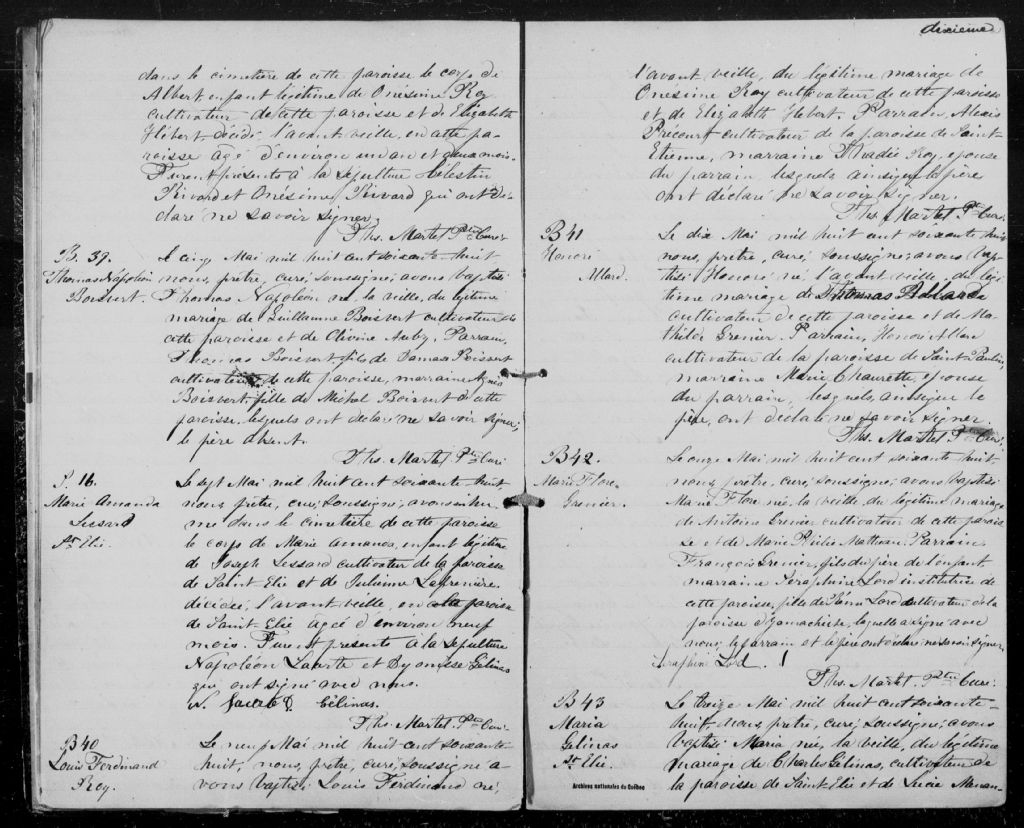 dans le cimetière de cette paroisse le corps de
Albert, enfant légitime de Onésime Roy
cultivateur de cette paroisse et de Elizabeth
Hébert décédé l'avant veille, en cette pa-
roisse âgé d'environ un an et deux mois.
Furent présents à la sépulture Célestin
Rivard et Onésime Rivard qui ont dé-
claré ne savoir signer.
Ths. Martel Ptre Curé
B. 39.
Thomas Napoléon
Boisvert.
Le cinq Mai mil huit cent soixante-huit
nous, prêtre, curé, soussigné, avons baptisé
Thomas Napoléon né, la veille, du légitime
mariage de Guillaume Boisvert cultivateur de
cette paroisse et de Olivine Auby, Parrain,
Thomas Boisvert fils de Damase Boisvert
cultivateur de cette paroisse, marraine Agnès
Boisvert, fille de Michel Boisvert de cette
paroisse, lesquels ont déclaré ne savoir signer,
le père absent.
Ths. Martel Ptre Curé
S. 16.
Marie Amanda
Lessard
St Elie.
Le sept Mai mil huit cent soixante huit,
nous, prêtre, curé, soussigné, avons inhu-
mé dans le cimetière de cette paroisse
le corps de Marie Amanda, enfant légitime
de Joseph Lessard cultivateur de la paroisse
de Saint-Elie et de Julienne Lafrenière
décédée, l'avant veille, en la paroisse
de Saint-Elie agée d'environ neuf
mois. Furent présents à la sépulture
Napoléon et Dyonisse Gélinas
qui ont signé avec nous.
Gélinas.
Ths. Martel Ptre Curé
B 40
Louis Ferdinand
Roy.
Le neuf Mai mil huit cent soixante-
huit, nous, prêtre, curé, soussigné a-
vons baptisé Louis Ferdinand né,
dixième
l'avant veille, du légitime mariage de
Onésime Roy cultivateur de cette paroisse
et de Elizabeth Hebert. Parrain, Alexis
Précourt cultivateur de la paroisse de Saint-
Etienne, marraine Roy, épouse
du parrain, lesquels ainsi que le père
ont déclaré ne savoir signer.
Ths. Martel Ptre Curé
B 41
Honoré
Allard.
Le dix Mai mil huit cent soixante huit
nous, prêtre, curé, soussigné, avons bap-
tisé Honoré né l'avant veille, du légi-
time mariage de Thomas Allard
cultivateur de cette paroisse et de Ma-
thilde Grenier. Parrain, Honoré Allard
cultivateur de la paroisse de Saint-Paulin,
marraine Marie Chaurette, épouse
du parrain, lesquels, ainsi que le
père, ont déclaré ne savoir signer.
Ths. Martel Ptre Curé
B 42.
Marie Flore
Grenier.
Le onze Mai mil huit cent soixante huit
nous, prêtre, curé, soussigné, avons baptisé
Marie Flore née, la veille, du légitime mariage
de Antoine Grenier cultivateur de cette parois
se et de Marie Mathieu. Parrain
François Grenier, fils du père de l'enfant
marraine Séraphine Lord institutrice de
cette paroisse, fille de Lord cultivateur de la
paroisse d'Yamachiche, laquelle a signé avec
nous, le parrain et le père ont déclaré ne savoir signer.
Seraphine Lord.
Ths. Martel Ptre Curé
B 43
Maria
Gelinas
St Elie.
Le treize Mai mil huit cent soixante-
huit, nous, prêtre, curé, soussigné, avons
baptisé Maria née, la veille, du légitime
mariage de Charles Gélinas, cultivateur de
la paroisse de Saint-Elie et de Lucie
Archives nationales du Québec